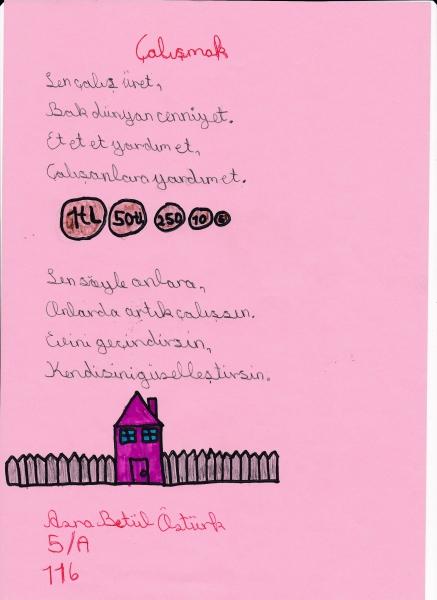 Çalışmak
Sen çalış üret,
Bak dünyan cenniyet.
Et et et yardım et,
Çalışanlara yardım et.
1TL 50tl 250 10 5
Sen söyle anlara,
Onlarda artık çalışsın.
Evini geçindirsin,
Kendisini güselleştirsin.
Asra Betül Östürk
5/A
116